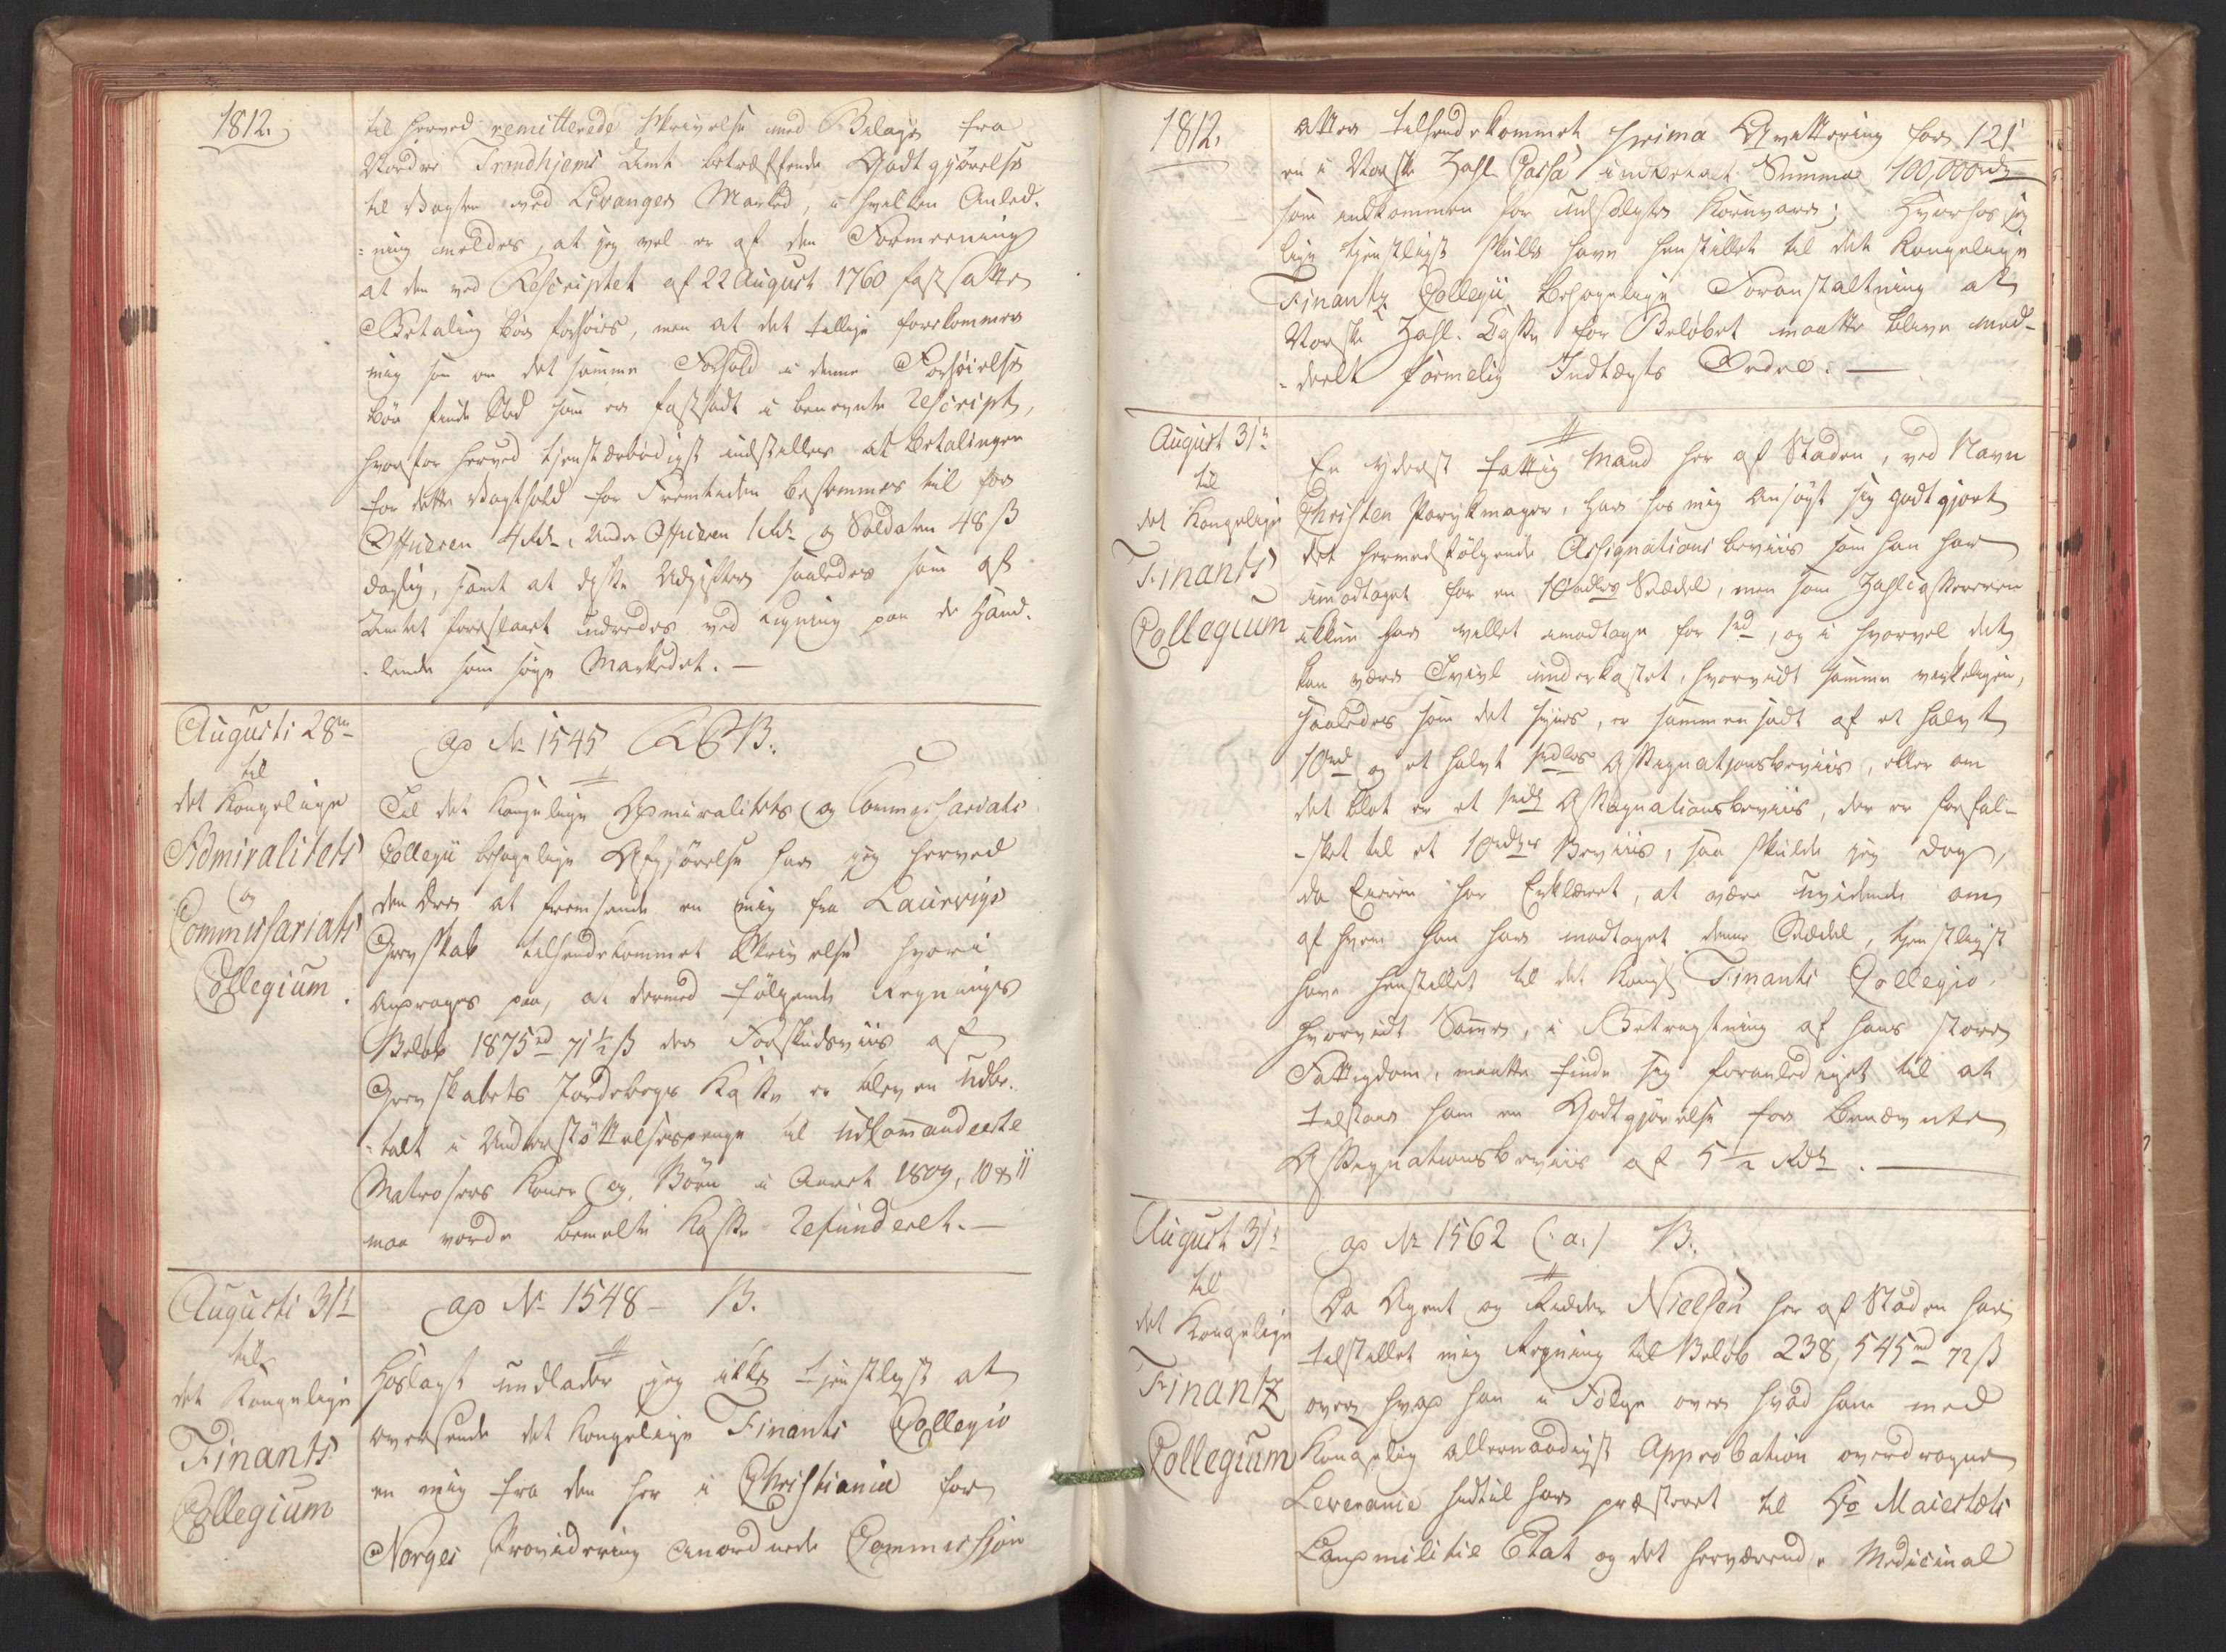 1812.
til herved remitterede Skrivelse med Bilage fra
Nordre Trondhjems Amt betræffende Godtgjörelse
til Vagten ved Levanger Marked, i hvilken Anled-
-ning meldes, at jeg vel er af den Formeening
at den ved Rescriptet af 22 August 1760 fastsatte
Betaling bör forhöies, men at det tillige forekommer
mig som om det samme Forhold i denne Forhöielse
bör finde Sted som er fastsadt i benevnte Rescript,
hvorfor herved tjenstærbödigst indstilles at Betalingen
for dette Vagthold for Fremtiden bestemmes til for
Officeren 4 Rdr, Under Officeren 1 Rdr og Soldaten 48 ß
daglig, samt at disse Udgifter saaledes som af
Amtet foreslaaet udredes ved Ligning paa de Hand-
-lende som söge Markedet. —
Augusti 28de
til
det Kongelige
Admiralitets
og
Commissariats
Collegium.
ad No 1545 B.
Til det Kongelige Admiralitets og Commissariats
Collegii behagelige Afgjörelse har jeg herved
den Ære at fremsende en mig fra Laurvigs
Grevskab tilhændekommet Skrivelse hvori
andrages paa, at dermed fölgende Regnings
Belöb 1875 rd 71½ ß der Forskudsviis af
Grevskabets Jordebogs Kasse er bleven udbe-
-talt i Understöttelsespenge til udkomanderte
Matrosers Koner og Börn i Aaret 1809, 10 & 11
maa vorde bemelte Kasse refunderet. —
Augusti 31te
til
det Kongelige
Finants
Collegium
ad No 1548 — B.
Hoslagt undlader jeg ikke tjenstligst at
oversende det Kongelige Finants Collegio
en mig fra den her i Christiania for
Norges Providering anordnede Commission
1812.
atter tilhændekommet prima Qvittering for 121
en i Norske Zahl Cassa indbetalt Summa 100,000 rd
som indkommen for udsolgte Kornvarer; hvorhos jeg
lige tjenstligst skulle have henstillet til det Kongelige
Finantz Collegii behagelige Foranstaltning at
Norske Zahl. Casse for Belöbet maatte blive med-
-deelt formelig Indtægts Ordre. —
August 31te
til
det Kongelige
Finants
Collegium
En yderst fattig Mand her af Staden, ved Navn
Christen Parykmager, har hos mig ansögt sig godtgjort
det hermedfölgende Assignations beviis som han har
imodtaget for en 10 rdlrs Seddel, men som Zahlcassereren
ikkun har villet imodtage for 1 rd, og i hvorvel det
kan være Tvivl underkastet, hvorvidt samme virkeligen,
saaledes som det synes, er sammensadt af et halvt
10 rd og et halvt 1 rdlrs Assignationsbeviis, eller om
det blot er et 1 rdr Assignationsbeviis, der er forfal-
-sket til et 10 rdlrs Beviis, saa skulde jeg dog,
da Eieren har Erklæret, at være uvidende om
af hvem han har modtaget denne Seddel, tjenstligst
have henstillet til det Kongl. Finants Collegio,
hvorvidt Samme, i Betragtning af hans store
Fattigdom, maatte finde sig foranlediget til at
tilstaae ham en Godtgjörelse for benævnte
Assignationsbeviis af 5½ Rdr. —
August 31te
til
det Kongelige
Finantz
Collegium
ad No 1562 (: a :) B.
Da Agent og Ridder Nielsen her af Staden har
tilstillet mig Regning til Belöb 238,545 rd 72 ß
over hvad han i Fölge over hvad ham med
Kongelig allernaadigst Approbation overdragne
Leverance hidtil har præsteret til Hs Maiestæts
Landmilitie Etat og det herværende Medicinal